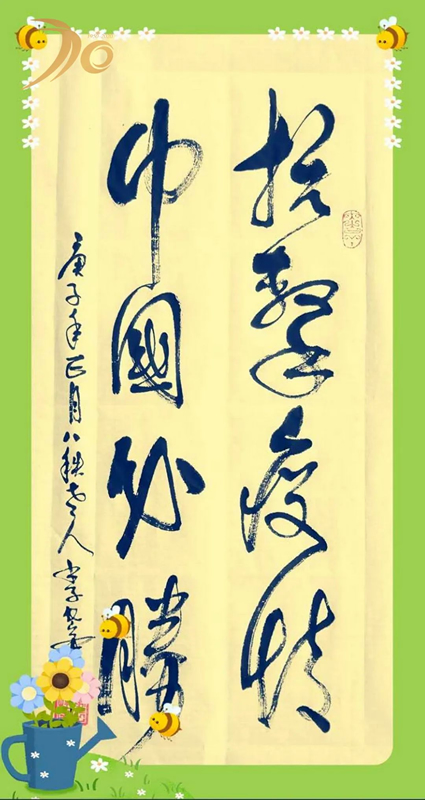 抗擊疫情
中國必勝
庚子年正月八秩老人李